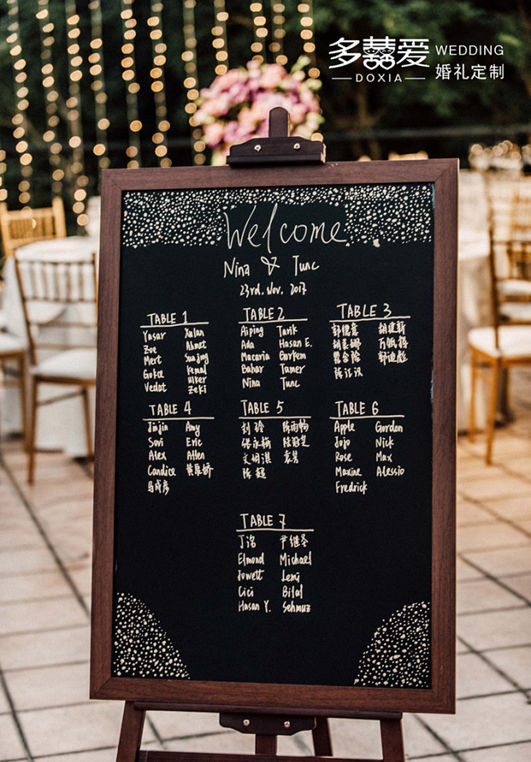 多囍爱 WEDDING
DOXIA 婚礼定制
Welcome
Nina & Tunc
23rd. Nov. 2017
TABLE 1
Yasar
Zoe
Mert
Gokce
Vedat
Xulan
Ahmet
Sunjing
Kemal
Ulker
Zeki
TABLE 2
Aiping Tarik
Ada Hasan E.
Macaria Gurkem
Bahar Tamer
Nina Tunc
TABLE 3
TABLE 4
Jinjin Amy
Sovi Eric
Alex Allen
Candice
TABLE 5
刘玲
陈
TABLE 6
Apple Gordon
Jojo Nick
Rose Max
Maxine Alessio
Fredrick
TABLE 7
丁洺 尹继圣
Elmond Michael
Jowett Leni
Cici Bilal
Hasan Y. Sehmuz